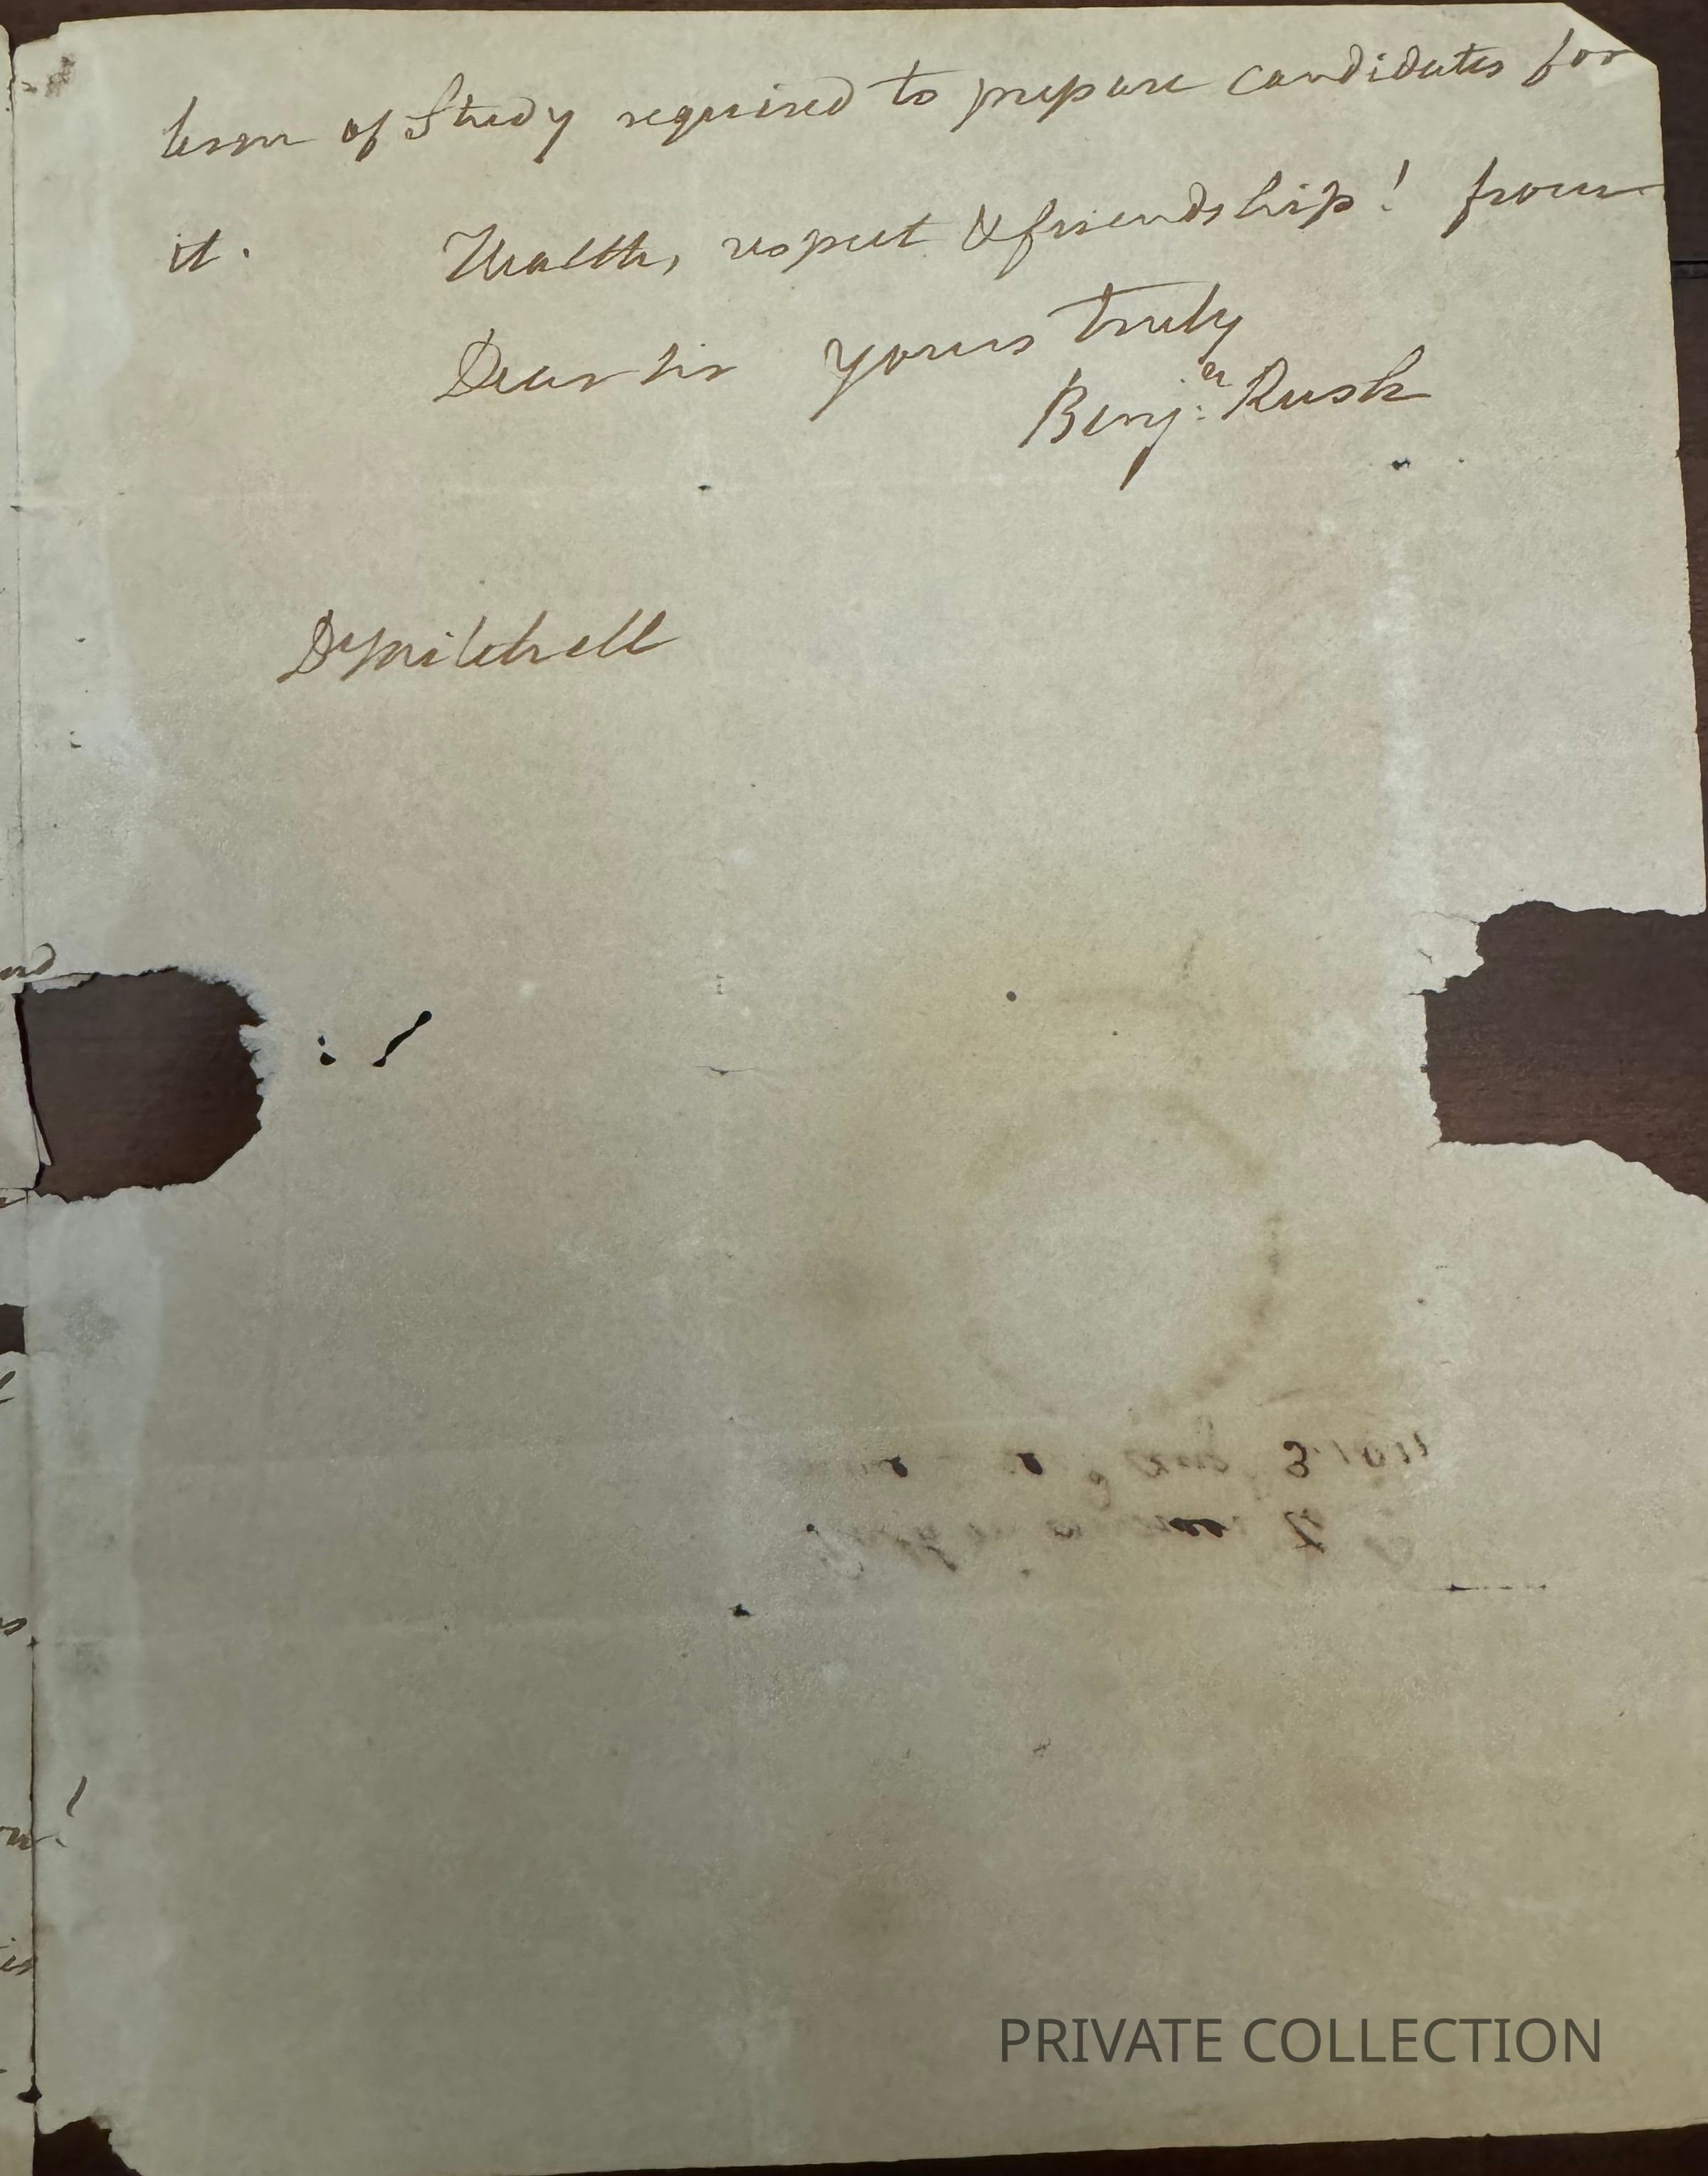 term of Study required to prepare candidates for
it. Health, respect & friendship! from
Dear Sir yours truly
Benj:n Rush
Dr Mitchell
PRIVATE COLLECTION